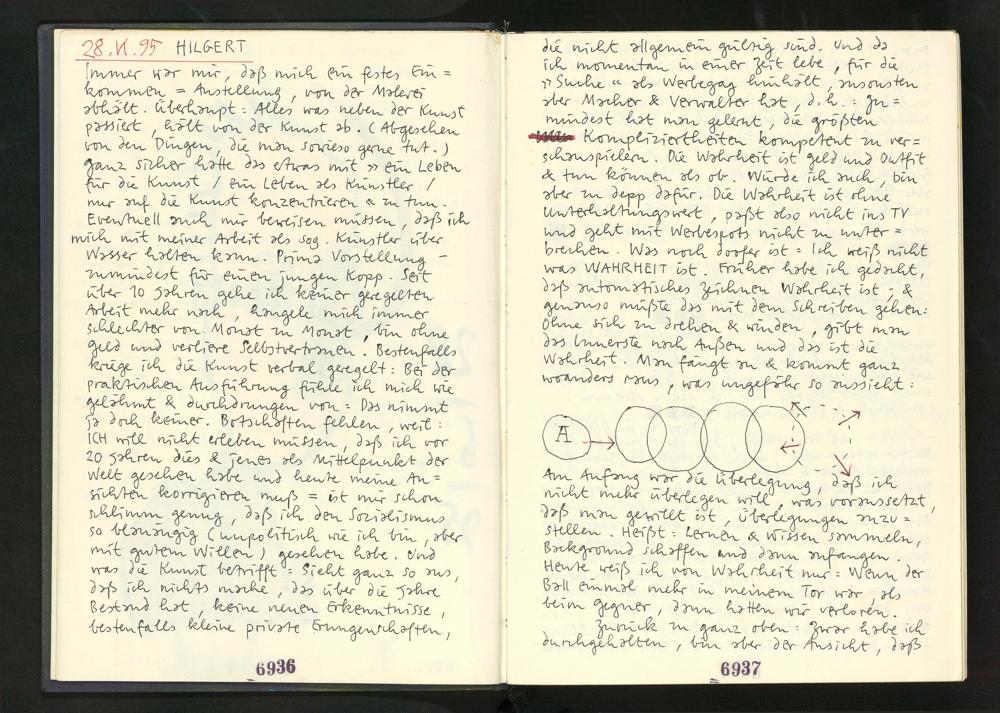 28.VI.95 HILGERT
Immer war mir, daß mich ein festes Ein=
kommen = Anstellung, von der Malerei
abhält. Überhaupt: Alles was neben der Kunst
passiert, hält von der Kunst ab. (Abgesehen
von den Dingen, die man sowieso gerne tut.)
ganz sicher hatte das etwas mit » ein Leben
für die Kunst / ein Leben als Künstler /
nur auf die Kunst konzentrieren « zu tun.
Eventuell auch mir beweisen müssen, daß ich
mich mit meiner Arbeit als sog. Künstler über
Wasser halten kann. Prima Vorstellung –
zumindest für einen jungen Kopp. Seit
über 10 Jahren gehe ich keiner geregelten
Arbeit mehr nach, hangele mich immer
schlechter von Monat zu Monat, bin ohne
geld und verliere Selbstvertrauen. Bestenfalls
kriege ich die Kunst verbal geregelt: Bei der
praktischen Ausführung fühle ich mich wie
gelähmt & durchdrungen von: Das nimmt
ja doch keiner. Botschaften fehlen, weil:
ICH will nicht erleben müssen, daß ich vor
20 Jahren dies & jenes als Mittelpunkt der
Welt gesehen habe und heute meine An=
sichten korrigieren muß = ist mir schon
schlimm genug, daß ich den Sozialismus
so blauäugig (unpolitisch wie ich bin, aber
mit gutem Willen) gesehen habe. Und
was die Kunst betrifft: Sieht ganz so aus,
daß ich nichts mache, das über die Jahre
Bestand hat, keine neuen Erkenntnisse,
bestenfalls kleine private Errungenschaften,
6936
die nicht allgemein gültig sind. Und da
ich momentan in einer Zeit lebe, für die
» Suche « als Werbegag hinhält, ansonsten
aber Macher & Verwalter hat, d.h.: zu=
mindest hat man gelernt, die größten
Kompliziertheiten kompetent zu ver=
schauspielern. Die Wahrheit ist geld und Outfit
& tun können als ob. Würde ich auch, bin
aber zu depp dafür. Die Wahrheit ist ohne
Unterhaltungswert, paßt also nicht ins TV
und geht mit Werbespots nicht zu unter=
brechen. Was noch doofer ist = Ich weiß nicht
was WAHRHEIT ist. Früher habe ich gedacht,
daß automatisches Zeichnen Wahrheit ist ; &
genauso müßte das mit dem Schreiben gehen:
Ohne sich zu drehen & winden, gibt man
das Innerste nach Außen und das ist die
Wahrheit. Man fängt an & kommt ganz
woanders raus, was ungefähr so aussieht:
A
Am Anfang war die Überlegung, daß ich
nicht mehr überlegen will, was voraussetzt,
daß man gewillt ist, Überlegungen anzu=
stellen. Heißt: Lernen & Wissen sammeln,
Background schaffen und dann anfangen.
Heute weiß ich von Wahrheit nur: Wenn der
Ball einmal mehr in meinem Tor war, als
beim gegner, dann hatten wir verloren.
Zurück zu ganz oben: Zwar habe ich
durchgehalten, bin aber der Ansicht, daß
6937